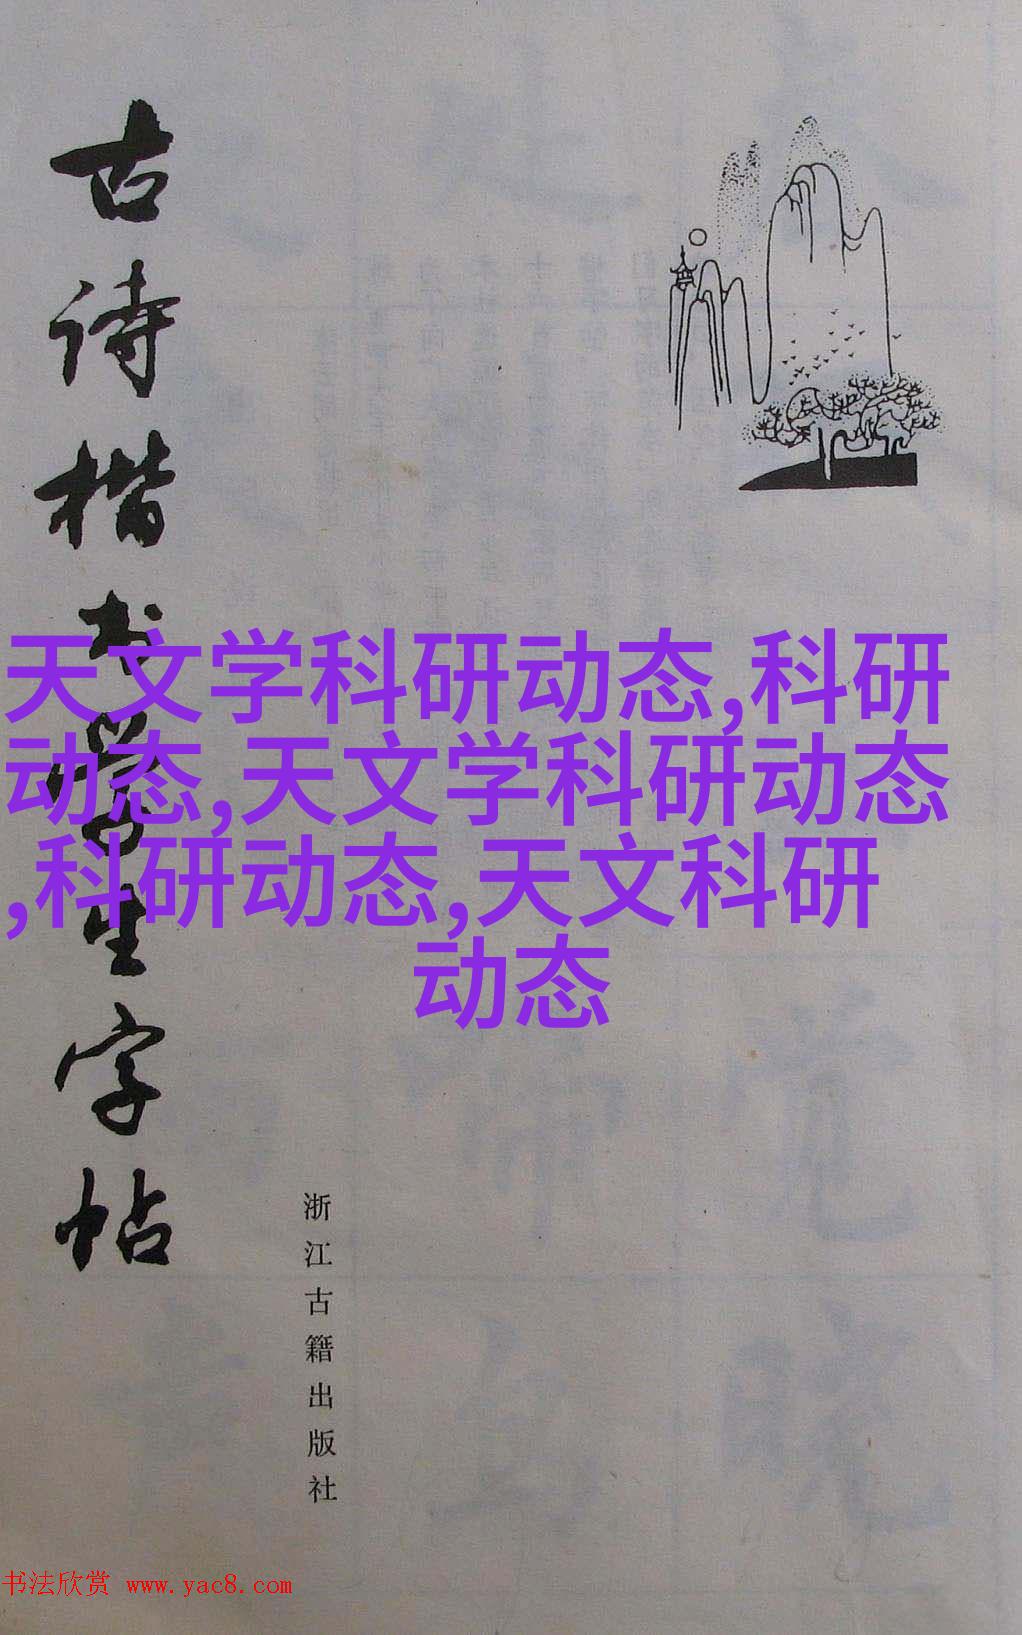 古诗楷书学生字帖
天文学科研动态,科研
动态,天文学科研动态
,科研动态,天文科研
动态
浙江古籍出版社
书法欣赏 www.yac8.com